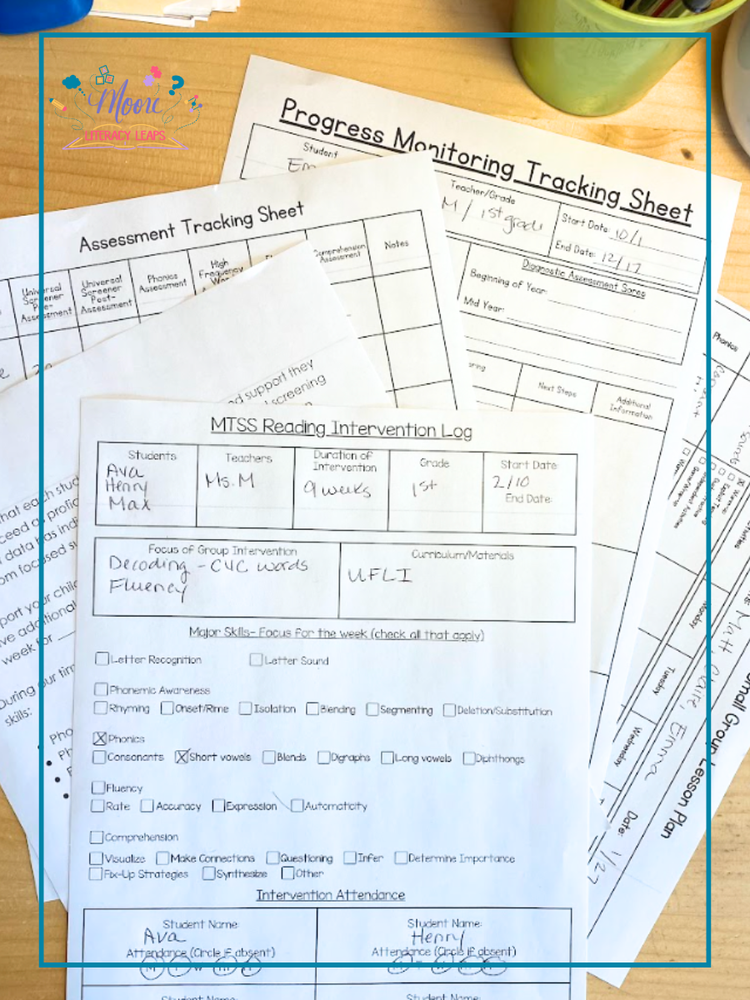 Moore
LITERACY LEAPS
Progress Monitoring Tracking Sheet
Student
Teacher/Grade
M / 1st grade
Start Date: 10/1
End Date: 12/17
Diagnostic Assessment Sores
Beginning of Year:
Mid Year:
Next Steps
Additional Information
Assessment Tracking Sheet
Universal Screener Pre-Assessment
Universal Screener Post-Assessment
Phonics Assessment
High Frequency
Comprehension Assessment
Notes
support they
screening
that each
data has
focused
port your
additional
week for
During our
skills:
MTSS Reading Intervention Log
Students
Ava
Henry
Max
Teachers
Ms. M
Duration of Intervention
9 weeks
Grade
1st
Start Date:
2/10
End Date:
Focus of Group Intervention
Decoding - CVC words
Fluency
Curriculum/Materials
UFLI
Major Skills- Focus for the week (check all that apply)
Letter Recognition Letter Sound
Phonemic Awareness
Rhyming Onset/Rime Isolation Blending Segmenting Deletion/Substitution
Phonics
Consonants Short vowels Blends Digraphs Long vowels Diphthongs
Fluency
Rate Accuracy Expression Automaticity
Comprehension
Visualize Make Connections Questioning Infer Determine Importance
Fix-Up Strategies Synthesize Other
Intervention Attendance
Student Name:
Ava
Attendance (Circle if absent)
Student Name:
Henry
Attendance (Circle if absent)
Student Name:
Student Name:
Phonics
Monday
Tuesday
Wednesday
Matt, Claire, Emma
Small Group Lesson Plan
Date: 1/27